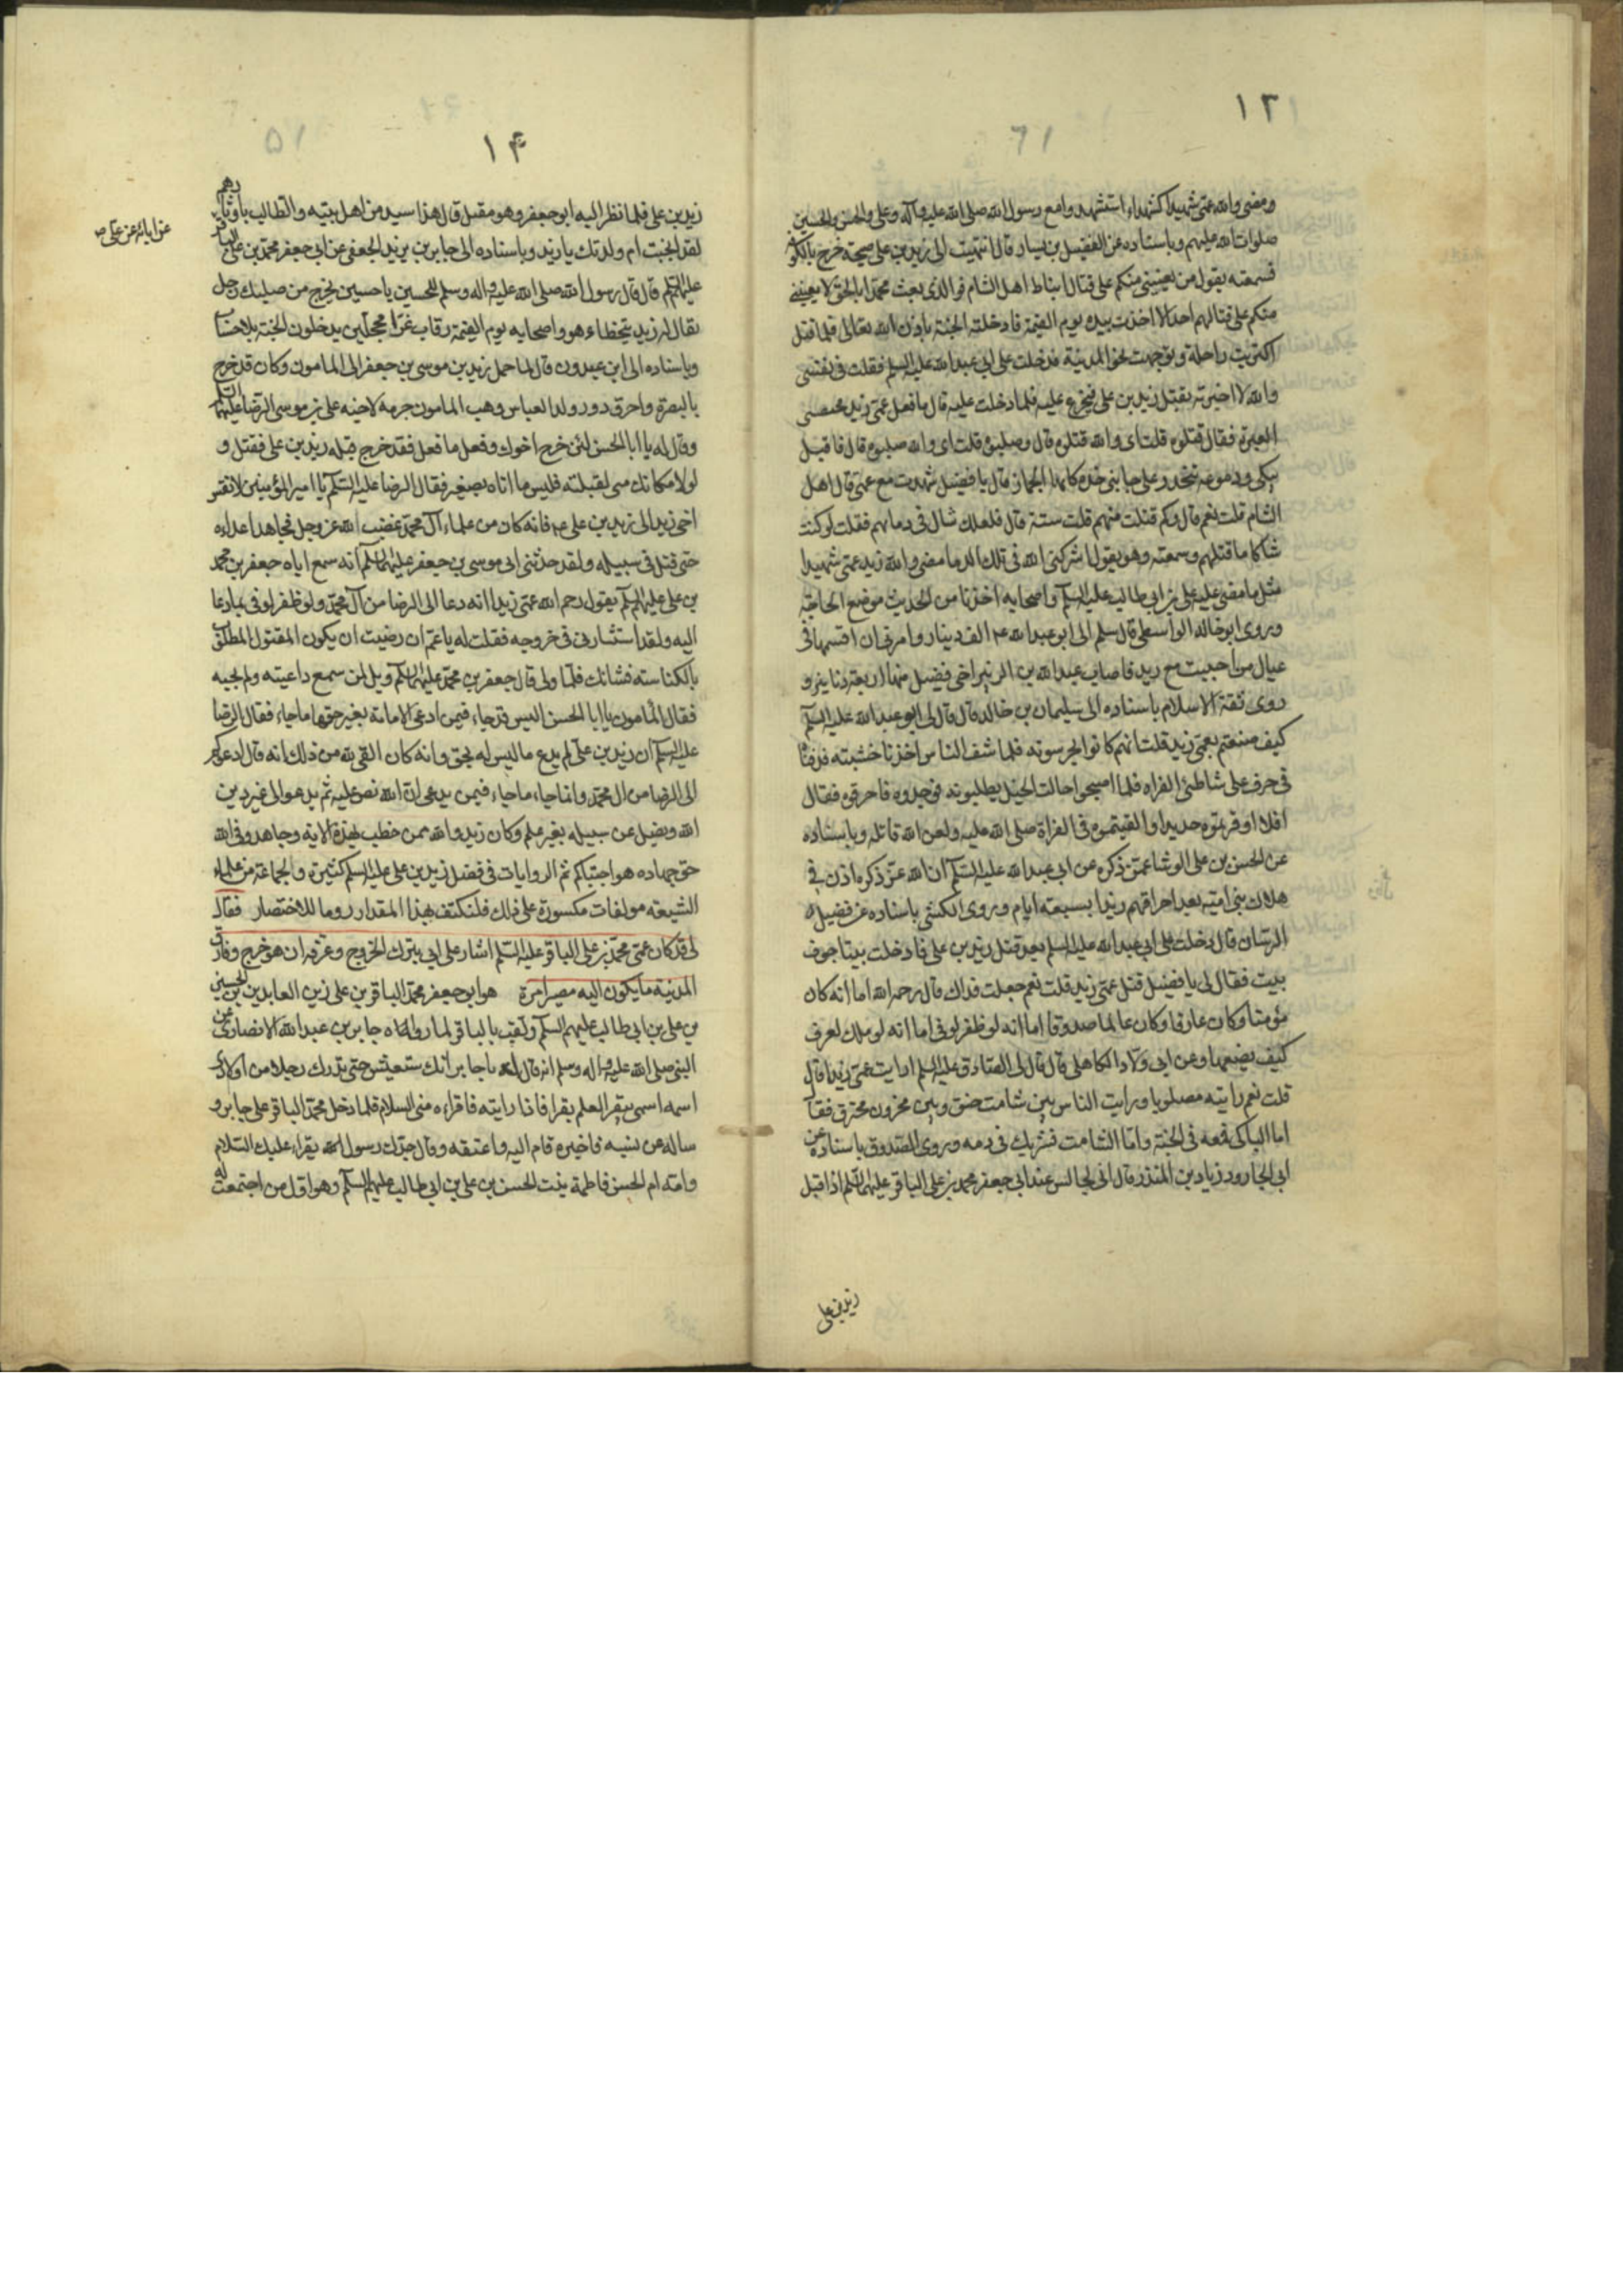 ١٣
ومضى والله عمى شهيدا كشهداء استشهدوا مع رسول الله صلى الله عليه وآله وعلى والحسن والحسين
صلوات الله عليهم وباسناده عن الفضيل بن يسار قال انتهيت الى زيد بن على صبيحة خرج بالكوفة
فسمعته يقول من يعيننى منكم على قتال انباط اهل الشام فوالذى بعث محمدا بالحق لا يعيننى
منكم على قتالهم احد الا اخذت بيده يوم القيمة فادخلته الجنة باذن الله تعالى فلما قتل
اكتريت راحلة وتوجهت نحو المدينة فدخلت على ابى عبد الله عليه السلم فقلت فى نفسى
والله لا اخبرته بقتل زيد بن على فيجزع عليه فلما دخلت عليه قال ما فعل عمى زيد فخنقتنى
العبرة فقال قتلوه قلت اى والله قتلوه قال وصلبوه قلت اى والله صلبوه قال فاقبل
يبكى ودموعه تنحدر على جانبى خده كانها الجمان قال يا فضيل شهدت مع عمى قتال اهل
الشام قلت نعم قال وكم قتلت منهم قلت ستة قال فلعلك شاك فى دمائهم فقلت لو كنت
شاكا ما قتلتهم وسمعته وهو يقول اشركنى الله فى تلك الدما مضى والله زيد عمى شهيدا
مثل ما مضى عليه على بن ابى طالب عليه السلم واصحابه اخذنا من الحديث موضع الحاجة
وروى ابو خالد الواسطى قال سلم الى ابو عبد الله ع الف دينار وامرنى ان اقسمها فى
عيال من اصيب مع زيد فاصاب عبد الله بن الزبير اخى فضيل منها اربعة دنانير و
روى ثقة الاسلام باسناده الى سليمان بن خالد قال قال لى ابو عبد الله عليه السلم
كيف صنعتم بعمى زيد قلت انهم كانوا يحرسونه فلما شف الناس اخذنا خشبته فدفناه
فى جرف على شاطئ الفراه فلما اصبحوا جالت الخيل يطلبونه فوجدوه فاحرقوه فقال
افلا اوقرتموه حديدا والقيتموه فى الفراة صلى الله عليه ولعن الله قاتله وباسناده
عن الحسن بن على الوشا عمن ذكره عن ابى عبد الله عليه السلم ان الله عز ذكره اذن فى
هلاك بنى امية بعد احراقهم زيدا بسبعة ايام وروى الكشى باسناده عن فضيل
الرسان قال دخلت على ابى عبد الله عليه السلم بعد قتل زيد بن على فادخلت بيتا جوف
بيت فقال لى يا فضيل قتل عمى زيد قلت نعم جعلت فداك قال رحمه الله اما انه كان
مؤمنا وكان عارفا وكان عالما صدوقا اما انه لو ظفر لوفى اما انه لو ملك لعرف
كيف يضعها وعن ابى ولاد الكاهلى قال قال لى الصادق عليه السلم ارايت عمى زيدا قال
قلت نعم رايته مصلوبا ورايت الناس بين شامت حنق وبين محزون محترق فقال
اما الباكى فمعه فى الجنة واما الشامت فشريك فى دمه وروى الصدوق باسناده عن
ابى الجارود زياد بن المنذر قال انى لجالس عند ابى جعفر محمد بن على الباقر عليهما السلم اذ اقبل
زيد بن على
١۴
زيد بن على فلما نظر اليه ابو جعفر وهو مقبل قال هذا سيد من اهل بيته والطالب باوتارهم
لقد انجبت ام ولدتك يا زيد وباسناده الى جابر بن يزيد الجعفى عن ابى جعفر محمد بن على الباقر
عن ابائه عن على ص
عليهما السلم قال قال رسول الله صلى الله عليه واله وسلم للحسين يا حسين يخرج من صلبك رجل
يقال له زيد يتخطاء هو واصحابه يوم القيمة رقاب غرا محجلين يدخلون الجنة بلا حساب
وباسناده الى ابن عبدون قال لما حمل زيد بن موسى بن جعفر الى المامون وكان قد خرج
بالبصرة واحرق دور ولد العباس وهب المامون جرمه لاخيه على بن موسى الرضا عليهما السلم
وقال له يا ابا الحسن لئن خرج اخوك وفعل ما فعل فقد خرج قبله زيد بن على فقتل و
لولا مكانك منى لقتلته فليس ما اتاه بصغير فقال الرضا عليه السلم يا امير المؤمنين لا تقس
اخى زيدا الى زيد بن على ع فانه كان من علماء آل محمد غضب لله عز وجل فجاهد اعداءه
حتى قتل فى سبيله ولقد حدثنى ابى موسى بن جعفر عليهما السلم انه سمع اباه جعفر بن محمد
بن على عليهم السلم يقول رحم الله عمى زيدا انه دعا الى الرضا من آل محمد ولو ظفر لوفى بما دعا
اليه ولقد استشارنى فى خروجه فقلت له يا عم ان رضيت ان يكون المقتول المصلوب
بالكناسته فشانك فلما ولى قال جعفر بن محمد عليهما السلم ويل لمن سمع داعيته ولم يجبه
فقال المامون يا ابا الحسن اليس قد جاء فيمن ادعى الامامة بغير حقها ما جاء فقال الرضا
عليه السلم ان زيد بن على لم يدع ما ليس له بحق وانه كان اتقى لله من ذلك انه قال ادعوكم
الى الرضا من ال محمد وانما جاء ما جاء فيمن يدعى ان الله نص عليه ثم يدعو الى غير دين
الله ويضل عن سبيله بغير علم وكان زيد والله ممن خطب بهذه الاية وجاهدوا فى الله
حق جهاده هو اجتبيكم ثم الروايات فى فضل زيد بن على عليه السلم كثيرة ولجماعة من علماء
الشيعه مولفات مكسورة على ذلك فلنكتف بهذا المقدار روما للاختصار فقال
لى قد كان عمى محمد بن على الباقر عليه السلم اشار على ابى بترك الخروج وعرفه ان هو خرج وفارق
المدينة ما يكون اليه مصير امره هو ابو جعفر محمد الباقر بن على زين العابدين بن الحسين
بن على بن ابى طالب عليهم السلم ولقب بالباقر لما رواه جابر بن عبد الله الانصارى عن
النبى صلى الله عليه واله وسلم انه قال له يا جابر انك ستعيش حتى تدرك رجلا من اولادى
اسمه اسمى يبقر العلم بقرا فاذا رايته فاقراءه منى السلام فلما دخل محمد الباقر على جابر و
ساله عن نسبه فاخبره قام اليه واعتنقه وقال جدك رسول الله يقراء عليك السلام
وامه ام الحسن فاطمة بنت الحسن بن على بن ابى طالب عليهم السلم وهو اول من اجتمعت له